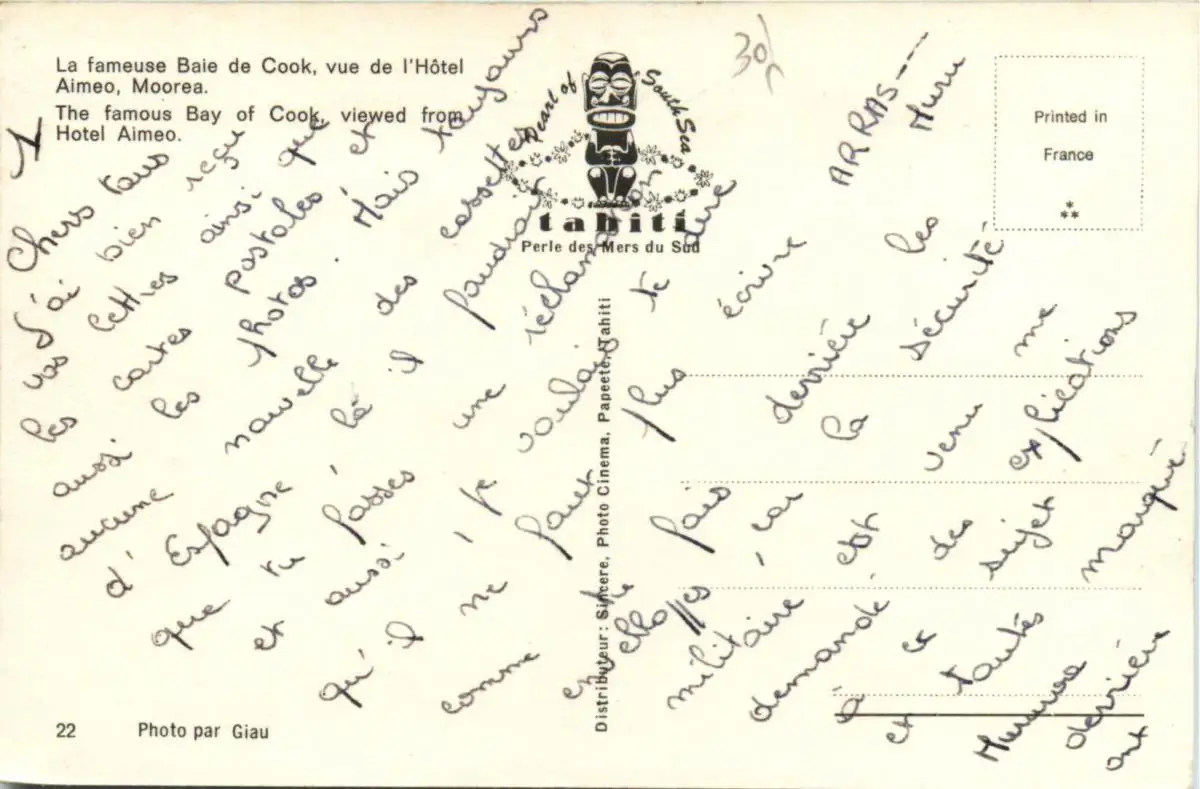 La fameuse Baie de Cook, vue de l'Hôtel
Aimeo, Moorea.
The famous Bay of Cook, viewed from
Hotel Aimeo.
Pearl of South Sea
tahiti
Perle des Mers du Sud
30f
Printed in
France
1
Chers tous
J'ai bien reçu
vos lettres ainsi que
les cartes postales et
aussi les photos. Mais toujours
aucune nouvelle des cassettes
d'Espagne, là il faudrait
que tu fasses une réclamation
et aussi, je voulais te dire
qu'il ne faut plus écrire ARRAS -- Muru
comme tu fais derrière les
enveloppes, car la sécurité
militaire est venu me
demandé des explications
à ce sujet
et toutes marqué
Mururoa
derrière
ont
Distributeur : Sincere, Photo Cinema, Papeete, Tahiti
22 Photo par Giau